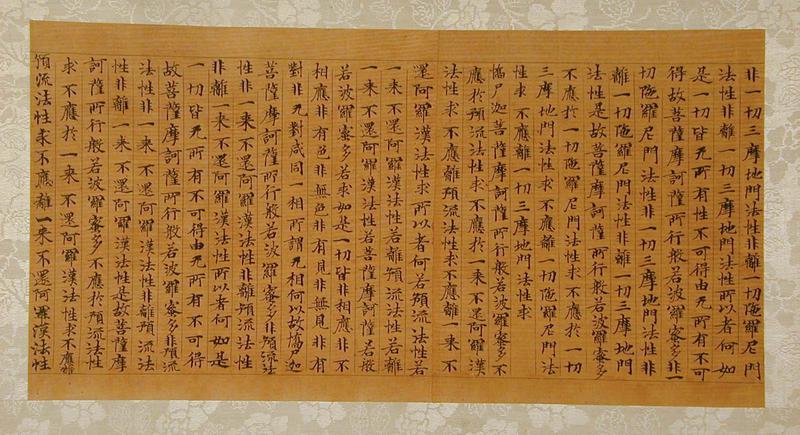 非一切三摩地門法性非離一切陁羅尼門
法性非離一切三摩地門法性所以者何如
是一切皆无所有性不可得由无所有不可
得故菩薩摩訶薩所行般若波羅蜜多非一
切陁羅尼門法性非一切三摩地門法性非
離一切陁羅尼門法性非離一切三摩地門
法性是故菩薩摩訶薩所行般若波羅蜜多
不應於一切陁羅尼門法性求不應於一切
三摩地門法性求不應離一切陁羅尼門法
性求不應離一切三摩地門法性求
憍尸迦菩薩摩訶薩所行般若波羅蜜多不
應於預流法性求不應於一來不還阿羅漢
法性求不應離預流法性求不應離一來不
還阿羅漢法性求所以者何若預流法性若
一來不還阿羅漢法性若離預流法性若離
一來不還阿羅漢法性若菩薩摩訶薩若般
若波羅蜜多若求如是一切皆非相應非不
相應非有色非無色非有見非無見非有
對非无對咸同一相所謂无相何以故憍尸迦
菩薩摩訶薩所行般若波羅蜜多非預流法
性非一來不還阿羅漢法性非離預流法性
非離一來不還阿羅漢法性所以者何如是
一切皆无所有不可得由无所有不可得
故菩薩摩訶薩所行般若波羅蜜多非預流
法性非一來不還阿羅漢法性非離預流法
性非離一來不還阿羅漢法性是故菩薩摩
訶薩所行般若波羅蜜多不應於預流法性
求不應於一來不還阿羅漢法性求不應離
預流法性求不應離一來不還阿羅漢法性